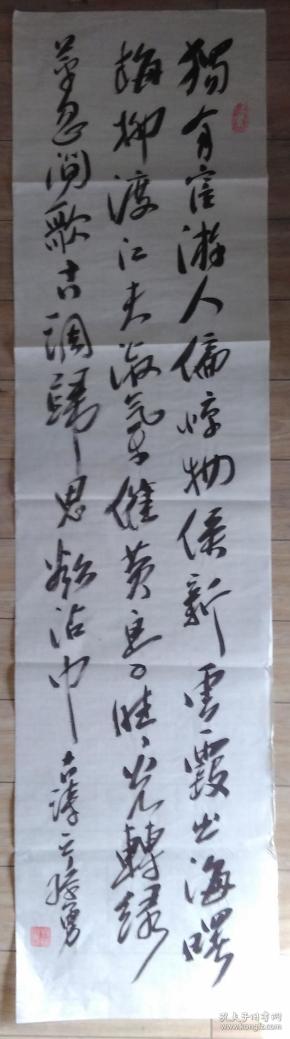 獨有宦游人偏惊物候新雲霞出海曙
梅柳渡江春淑氣催黄鸟晴光轉绿
苹忽闻歌古调歸思欲沾巾 古诗 勇
孔夫子旧书网